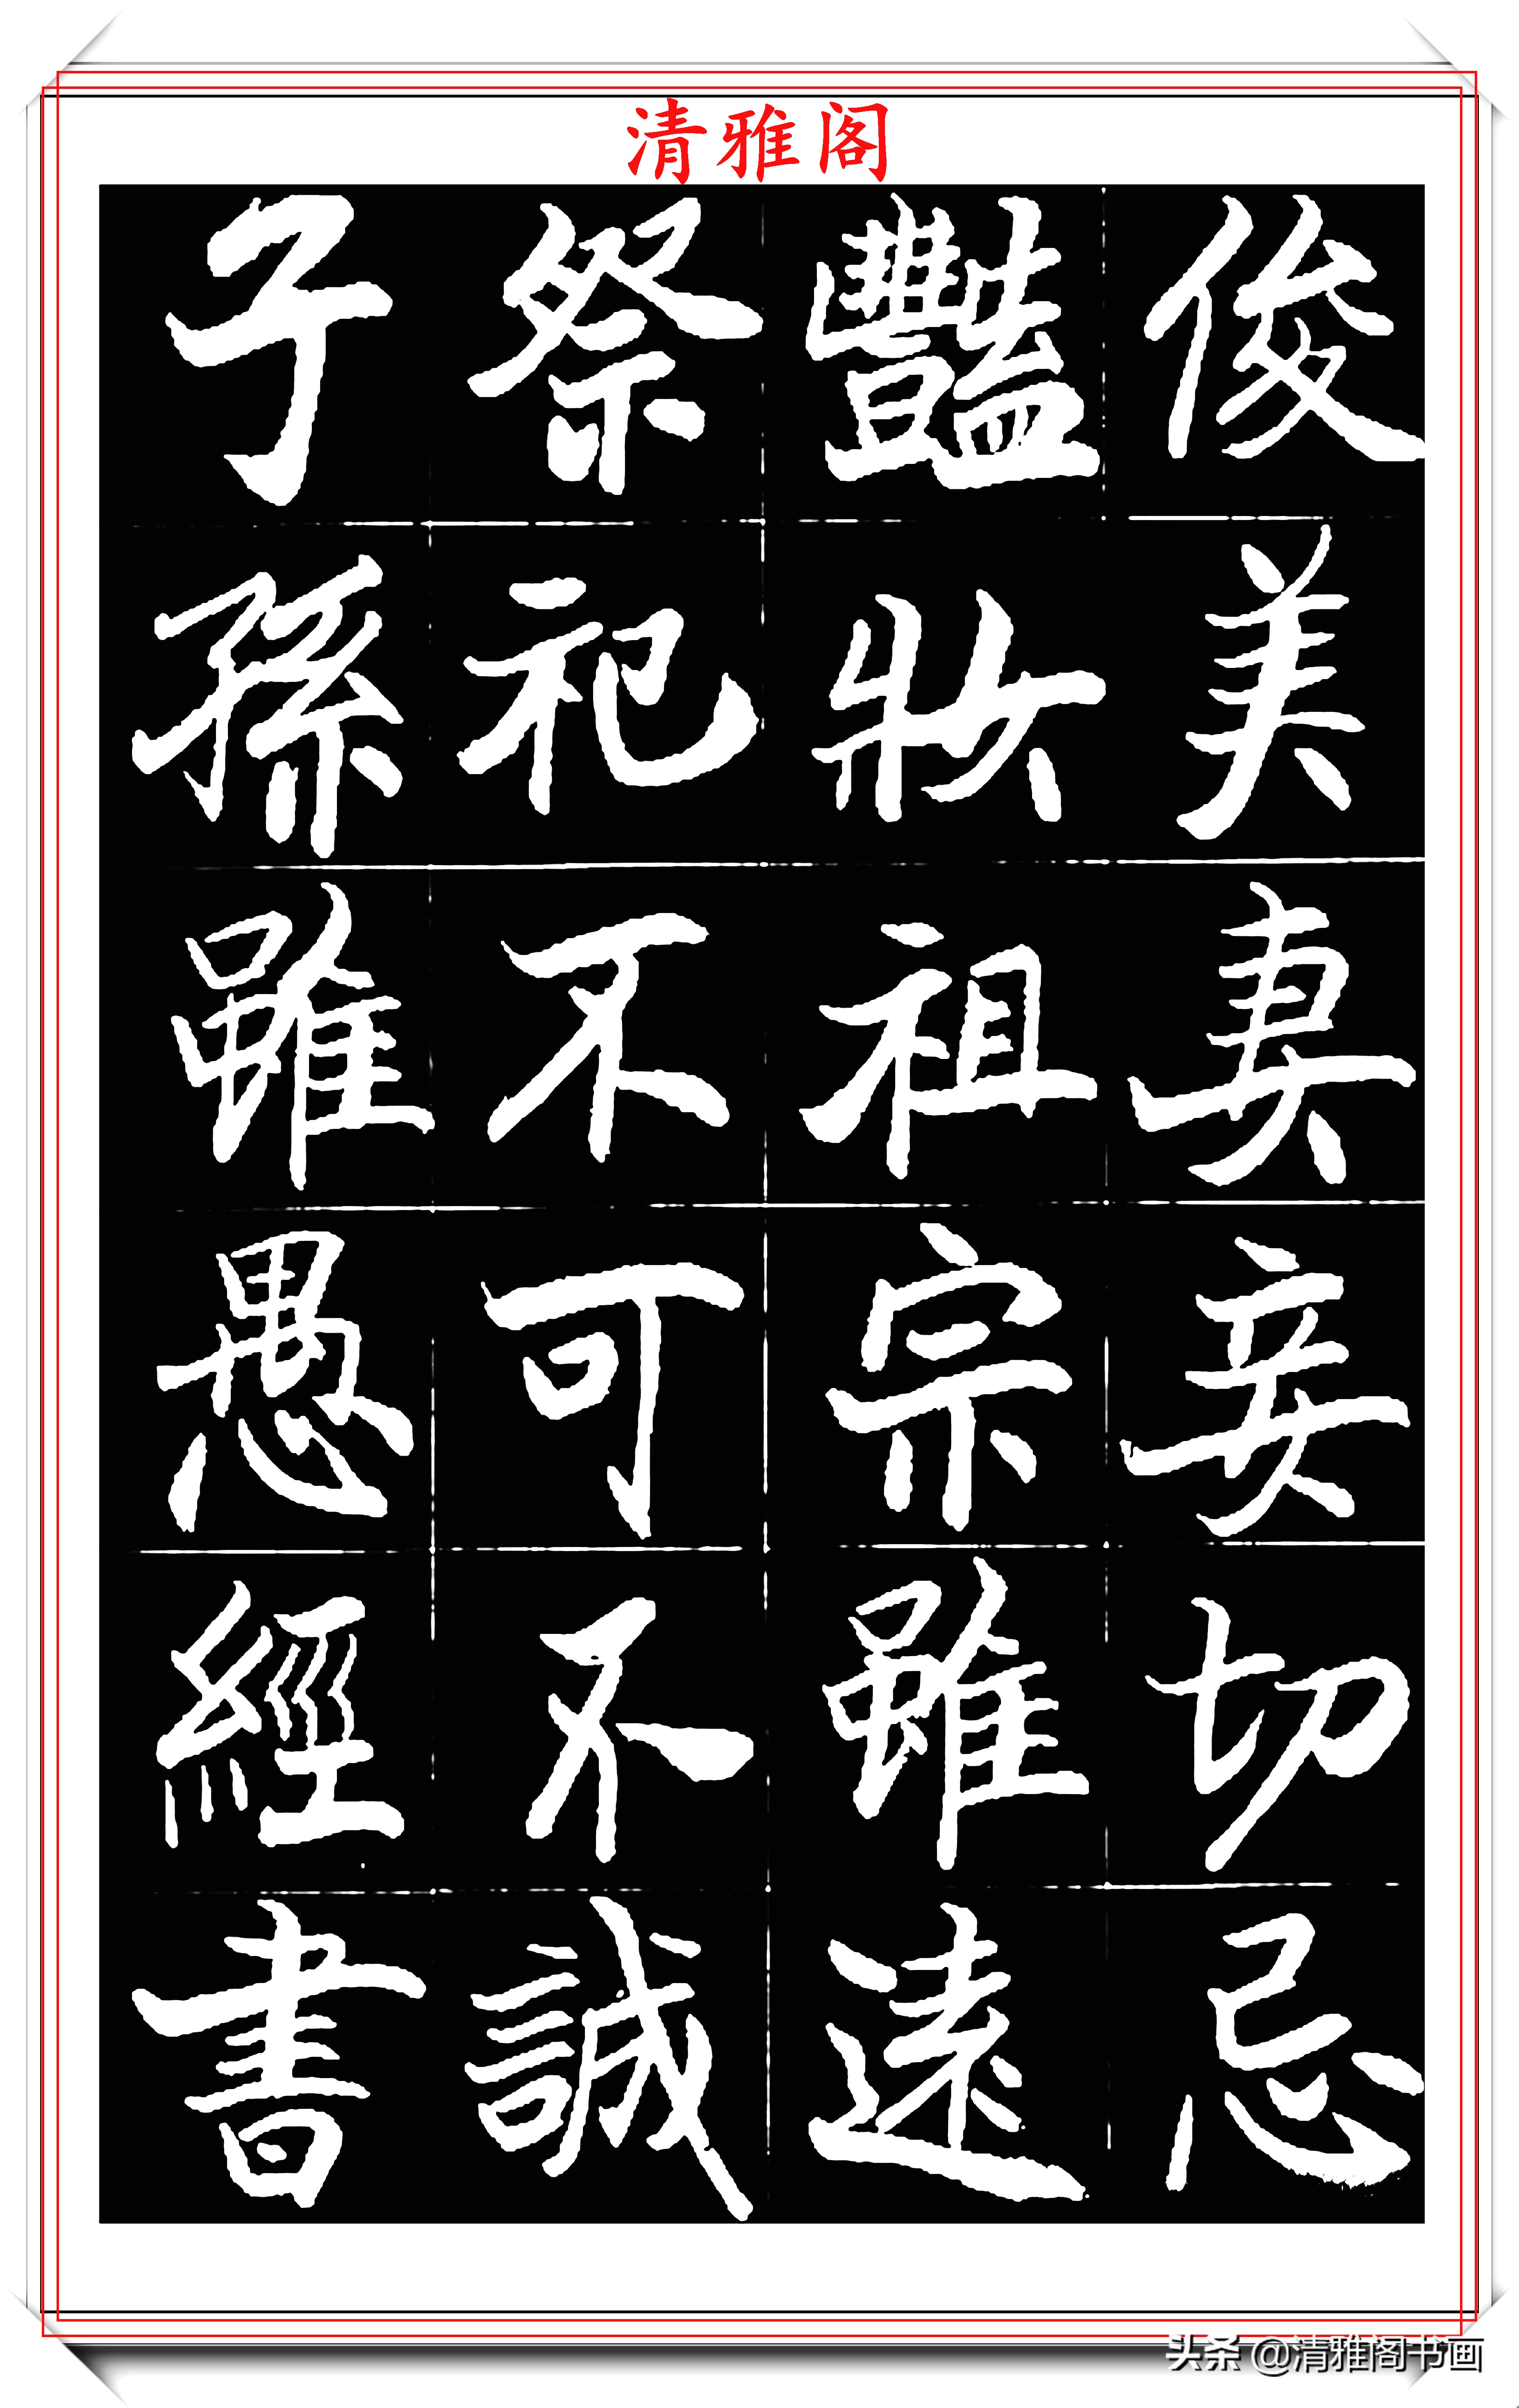 清雅阁
俊美妻妾切忌
豔妝祖宗雖遠
祭祀不可不誠
子孫雖愚經書
头条 @清雅阁书画